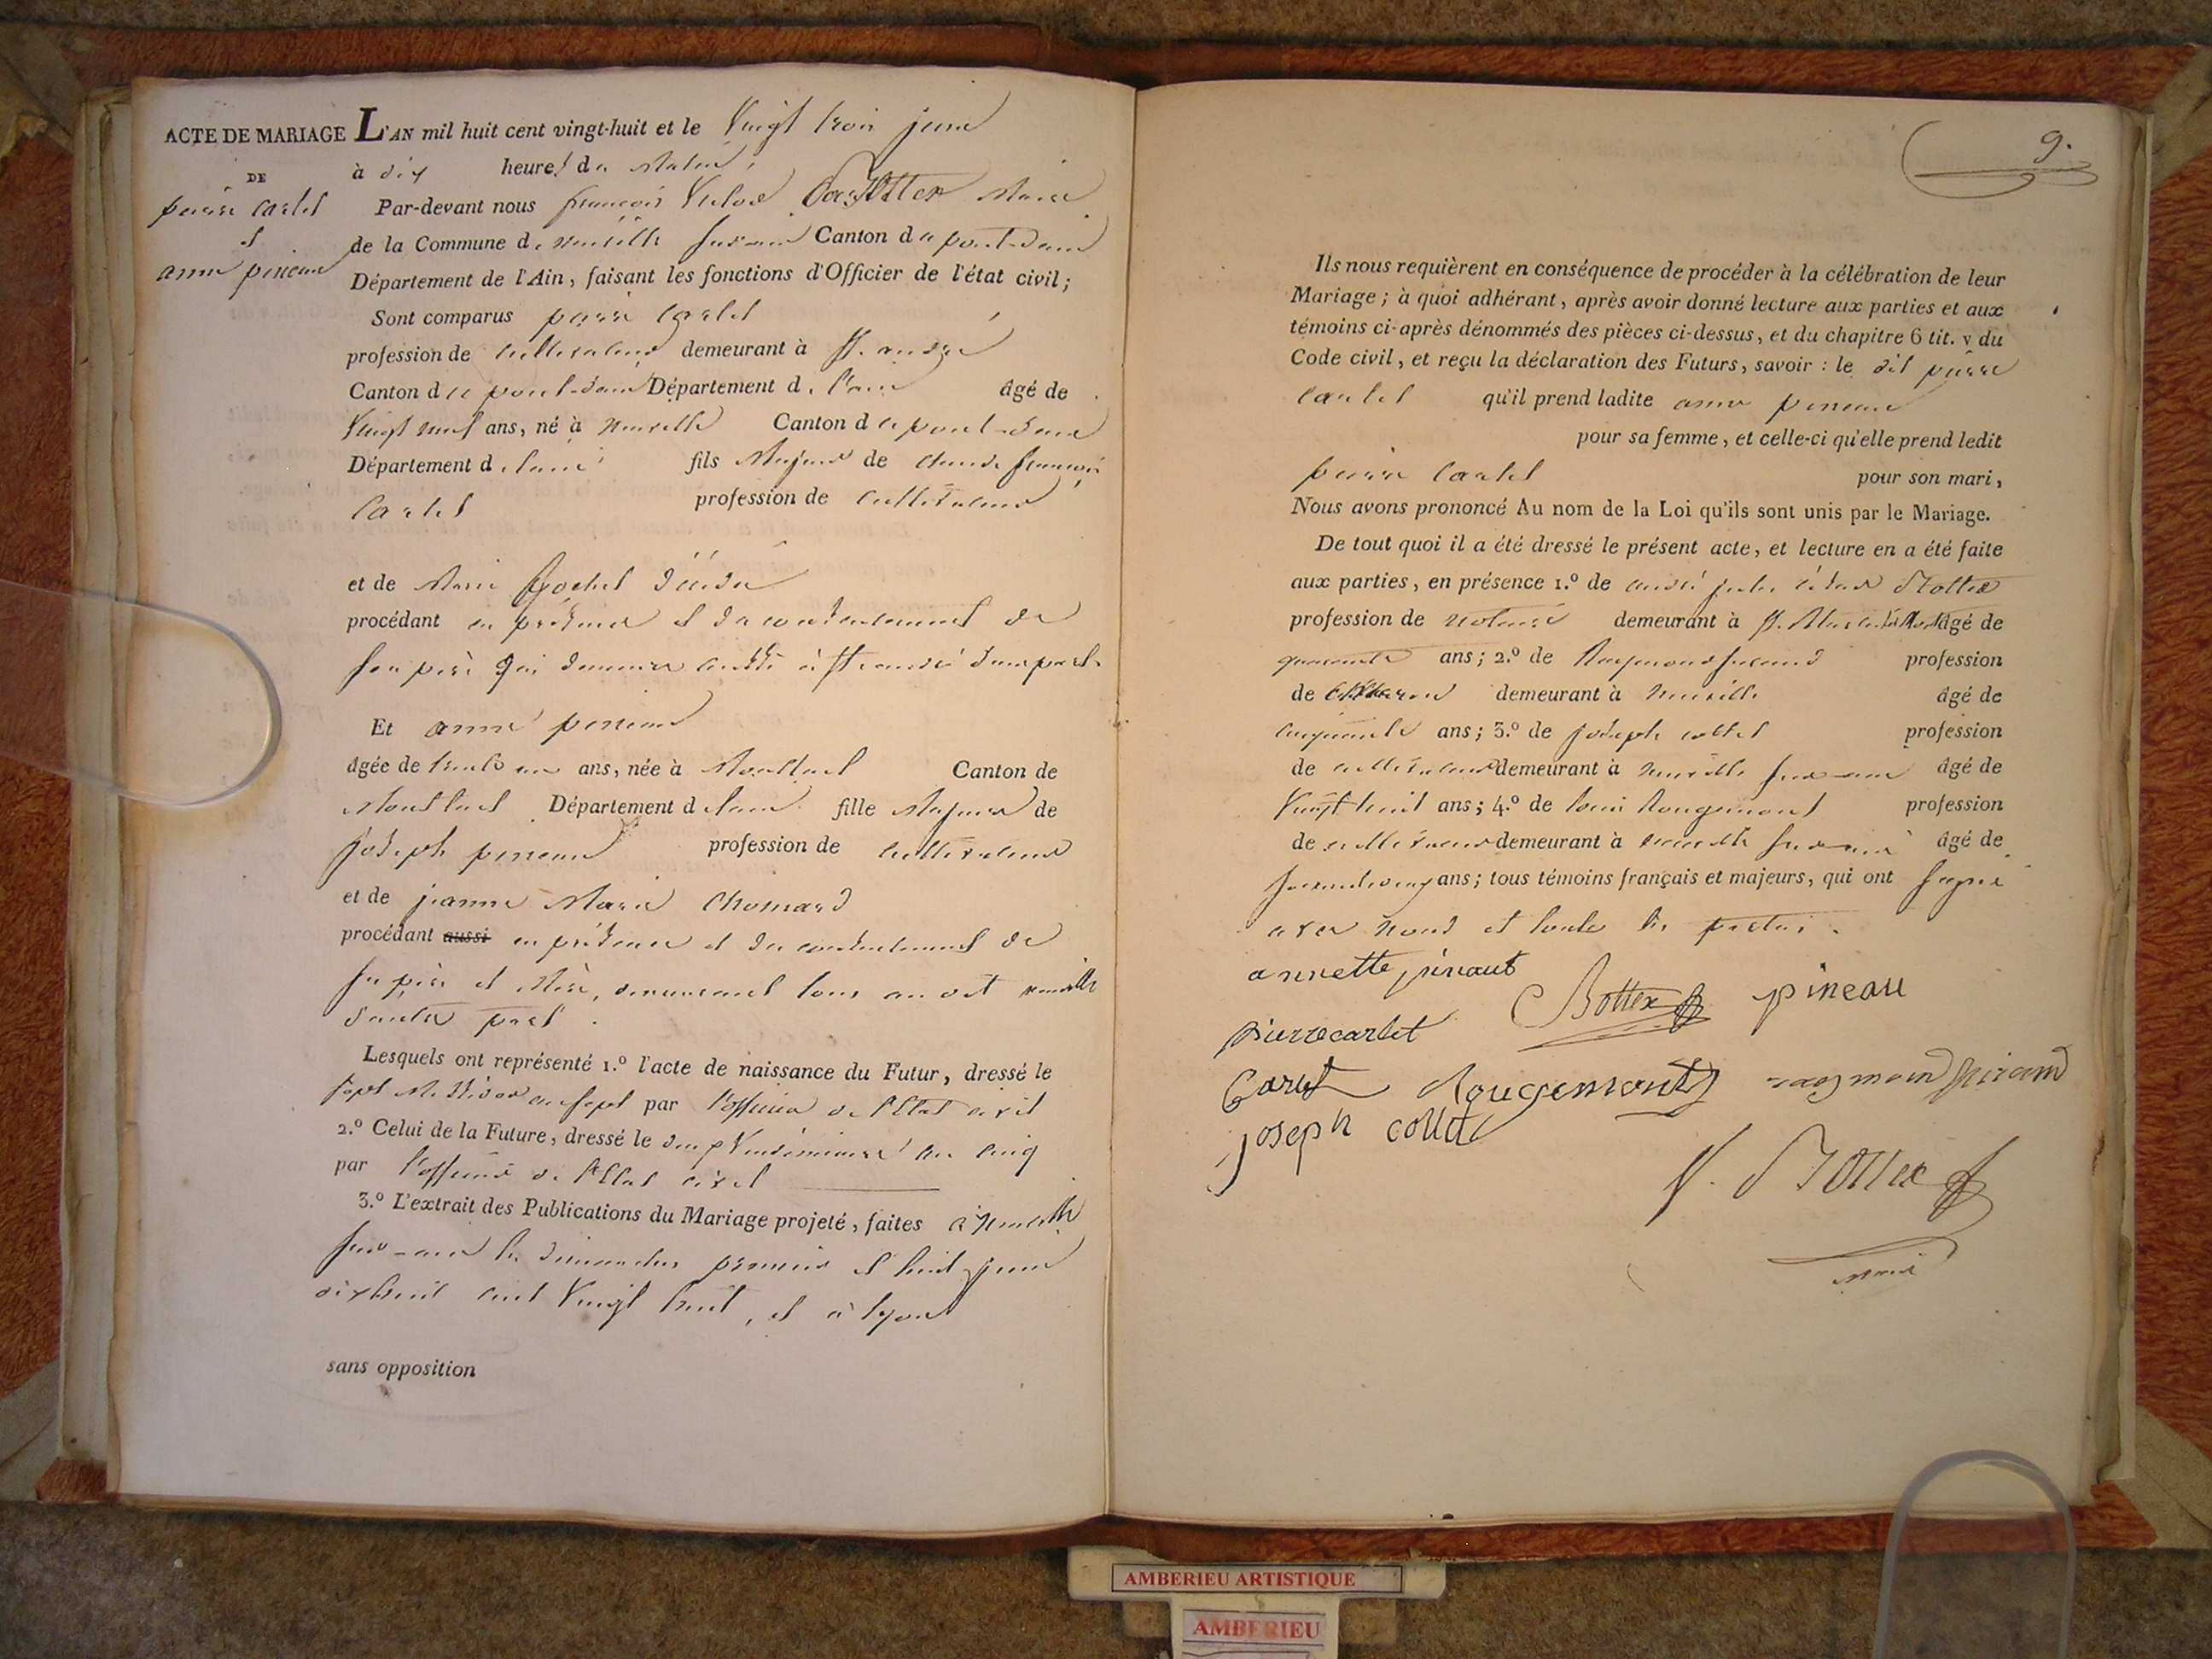 ACTE DE MARIAGE L'AN mil huit cent vingt-huit et le Vingt trois juin
DE
à dix heures du Matin,
pierre Carlet
et
anne pineau
Par-devant nous françois Victor Botter Maire
de la Commune de neuville sur-ain Canton de pont-dain
Département de l'Ain, faisant les fonctions d'Officier de l'état civil;
Sont comparus pierre Carlet
profession de cultivateur demeurant à St. andré
Canton de pont-dain Département de l'ain âgé de
Vingt neuf ans, né à neuville Canton de pont-dain
Département de l'ain fils Majeur de Claude françois
Carlet profession de cultivateur
et de Marie décédée
procédant en présence et du consentement de
son père qui demeure audit St andré d'une part.
Et anne pineau
âgée de trente un ans, née à Montluel Canton de
Montluel Département de l'ain fille Majeure de
Joseph pineau profession de cultivateur
et de jeanne Marie Chomard
procédant aussi en présence et du consentement de
ses père et Mère, demeurant tous au dit neuville
d'autre part.
Lesquels ont représenté 1.º l'acte de naissance du Futur, dressé le
sept Messidor an sept par l'officier de l'Etat civil
2.º Celui de la Future, dressé le Vendémiaire an cinq
par l'officier de l'Etat civil
3.º L'extrait des Publications du Mariage projeté, faites à neuville
sur-ain les dimanches premier et huit juin
dix huit cent Vingt huit, et à lyon
sans opposition
9.
Ils nous requièrent en conséquence de procéder à la célébration de leur
Mariage; à quoi adhérant, après avoir donné lecture aux parties et aux
témoins ci-après dénommés des pièces ci-dessus, et du chapitre 6 tit. v du
Code civil, et reçu la déclaration des Futurs, savoir: le dit pierre
Carlet qu'il prend ladite anne pineau
pour sa femme, et celle-ci qu'elle prend ledit
pierre Carlet pour son mari,
Nous avons prononcé Au nom de la Loi qu'ils sont unis par le Mariage.
De tout quoi il a été dressé le présent acte, et lecture en a été faite
aux parties, en présence 1.º de andré jules César Bottex
profession de notaire demeurant à St. Martin du Mont âgé de
quarante ans; 2.º de Raymond profession
de demeurant à neuville âgé de
cinquante ans; 3.º de Joseph collet profession
de cultivateur demeurant à neuville sur-ain âgé de
Vingt huit ans; 4.º de louis Rougemont profession
de cultivateur demeurant à neuville sur-ain âgé de
ans; tous témoins français et majeurs, qui ont signé
avec nous et toutes les parties.
annette pinaut
Bottex pineau
pierre carlet
Carlet Rougemont
joseph collet
V. Bottex
maire
AMBERIEU ARTISTIQUE
AMBERIEU